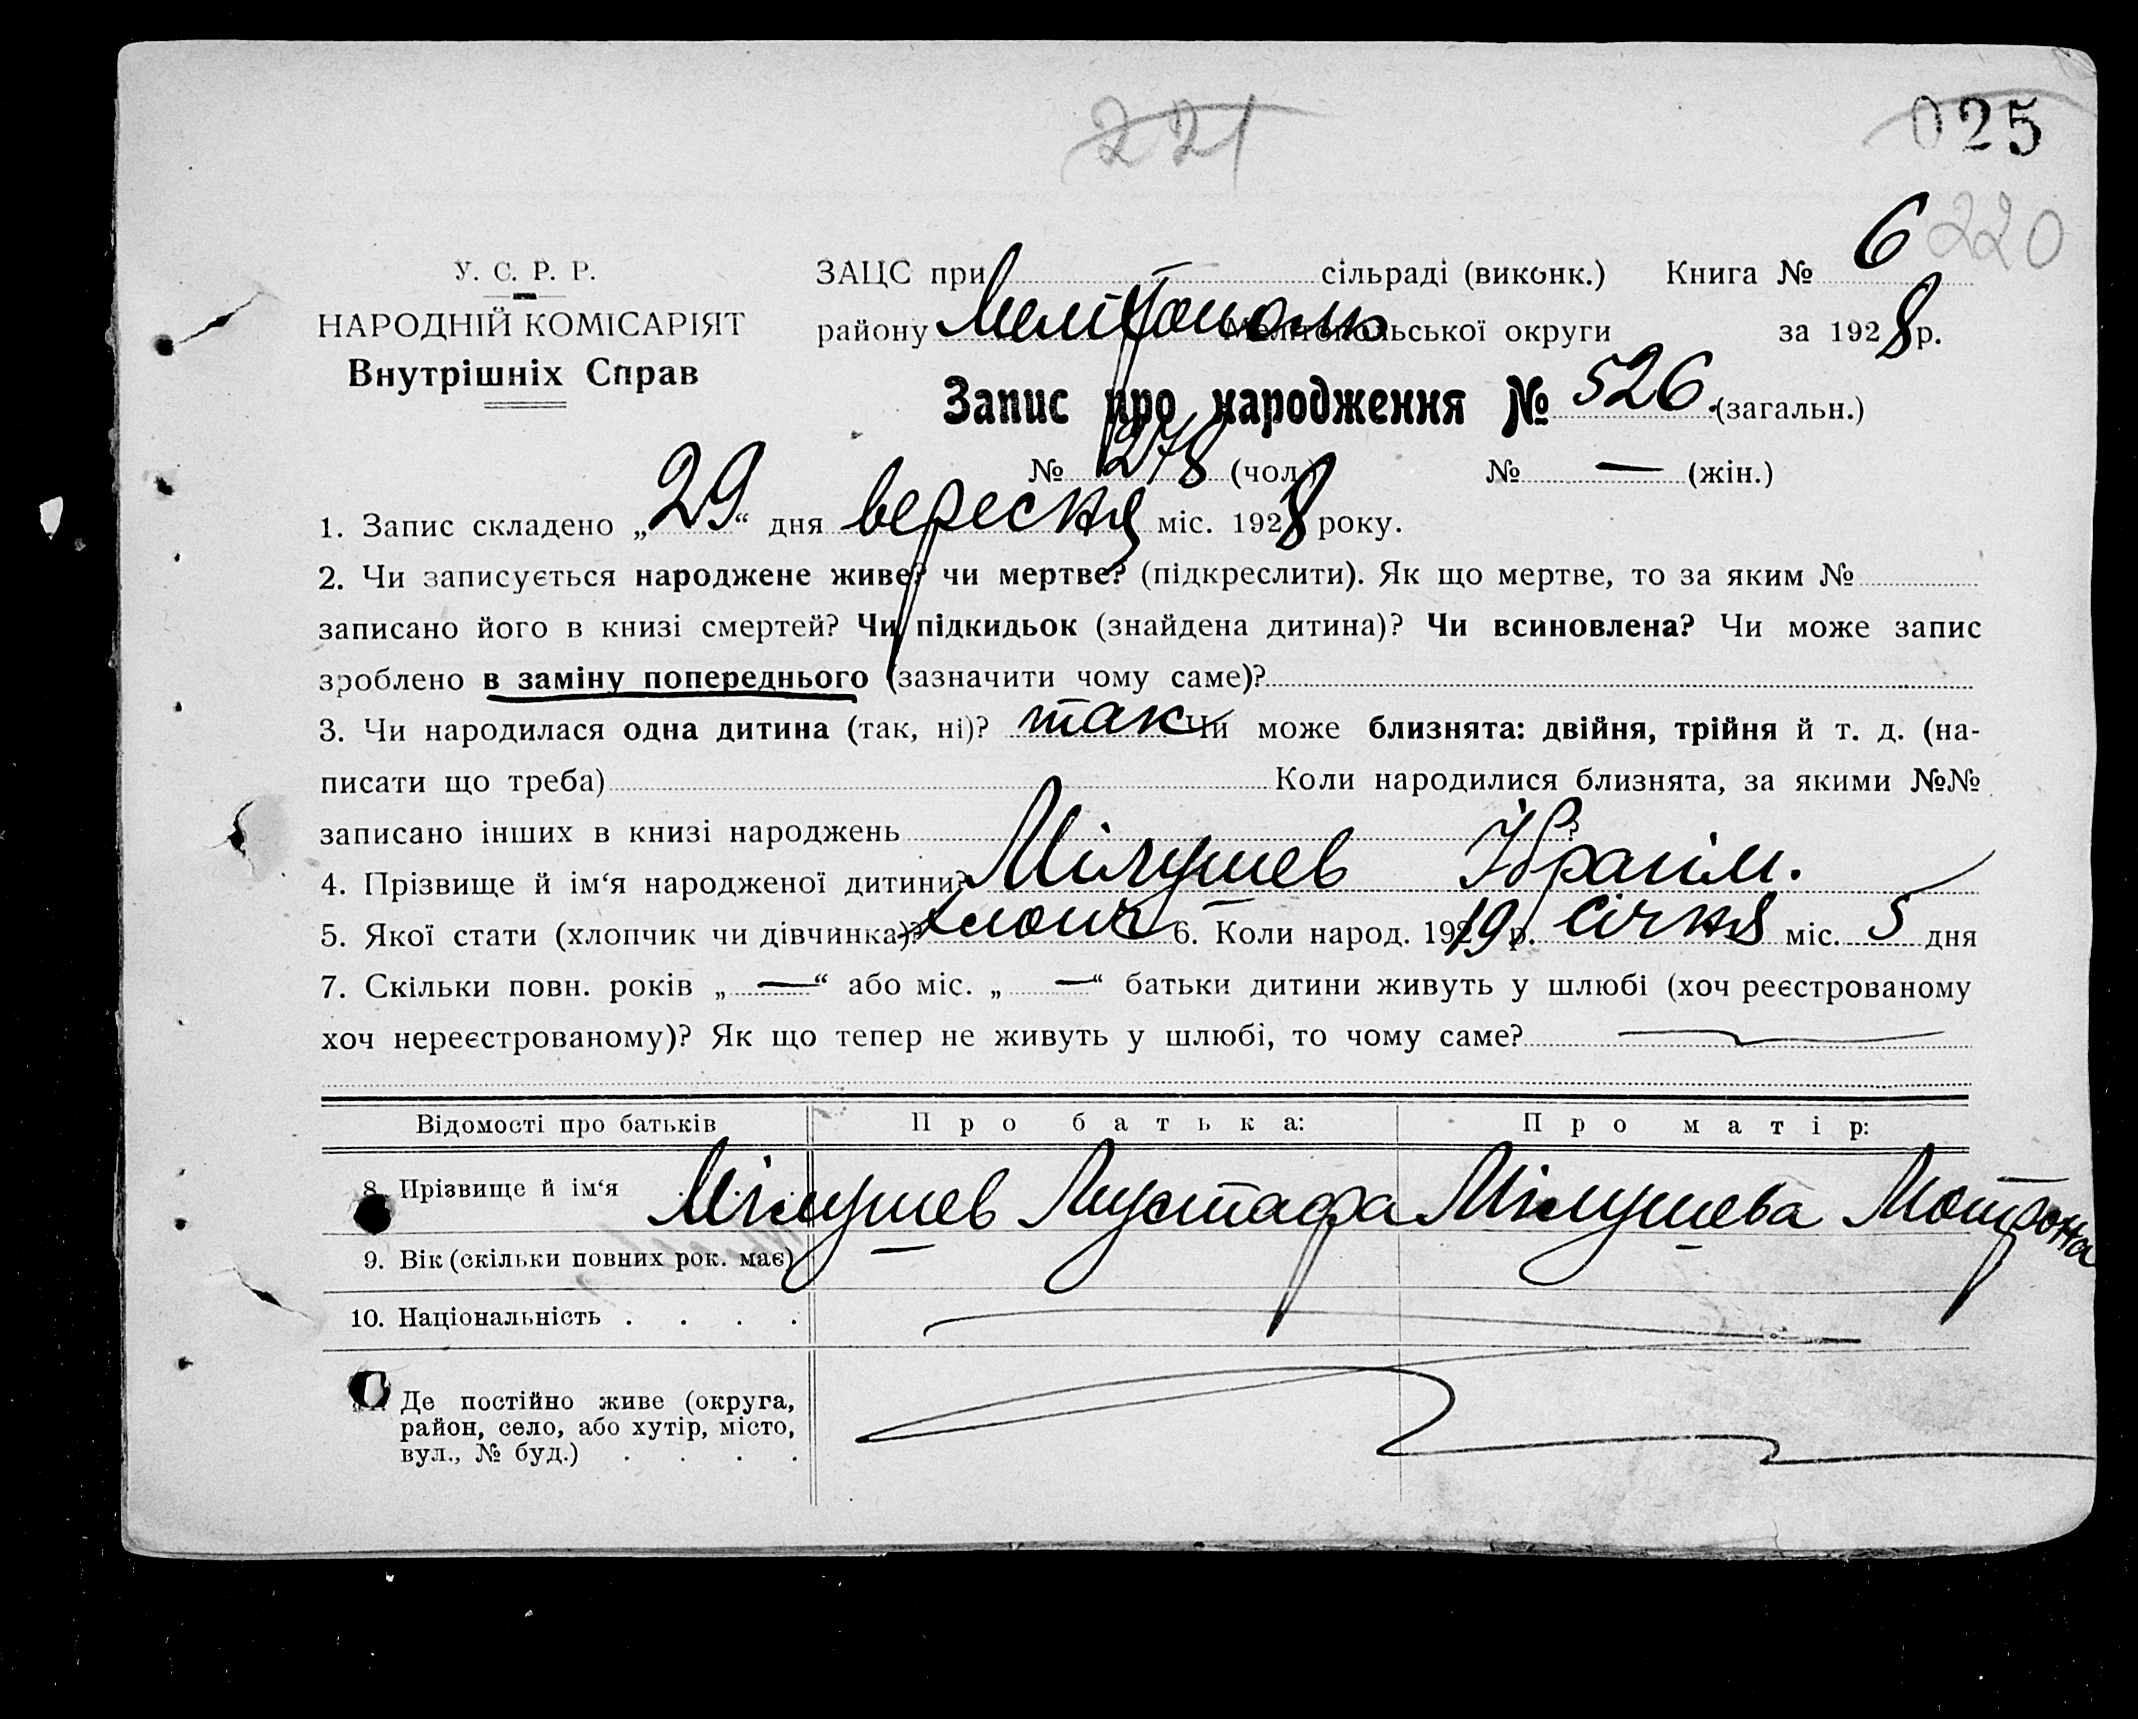 221
025
220
У. С. Р. Р.
НАРОДНІЙ КОМІСАРІЯТ
Внутрішніх Справ
ЗАЦС при сільраді (виконк.) Книга № 6
району Мелітополь Мелітопольської округи за 1928 р.
Запис про народження № 526. (загальн.)
№ 278 (чол.) № — (жін.)
1. Запис складено „29“ дня вересня міс. 1928 року.
2. Чи записується народжене живе? чи мертве? (підкреслити). Як що мертве, то за яким №
записано його в книзі смертей? Чи підкидьок (знайдена дитина)? Чи всиновлена? Чи може запис
зроблено в заміну попереднього (зазначити чому саме)?
3. Чи народилася одна дитина (так, ні)? так Чи може близнята: двійня, трійня й т. д. (на-
писати що треба) Коли народилися близнята, за якими №№
записано інших в книзі народжень ?
4. Прізвище й ім‘я народженої дитини? Мілушев Ібрагім.
5. Якої стати (хлопчик чи дівчинка)? хлопч 6. Коли народ. 1919 р. січня міс. 5 дня
7. Скільки повн. років „—“ або міс. „—“ батьки дитини живуть у шлюбі (хоч реєстрованому
хоч нереєстрованому)? Як що тепер не живуть у шлюбі, то чому саме?
Відомості про батьків Про батька: Про матір:
8. Прізвище й ім‘я Мілушев Мустафа Мілушева Мотрона
9. Вік (скільки повних рок. має)
10. Національність . . . .
Де постійно живе (округа,
район, село, або хутір, місто,
вул., № буд.) . . . .